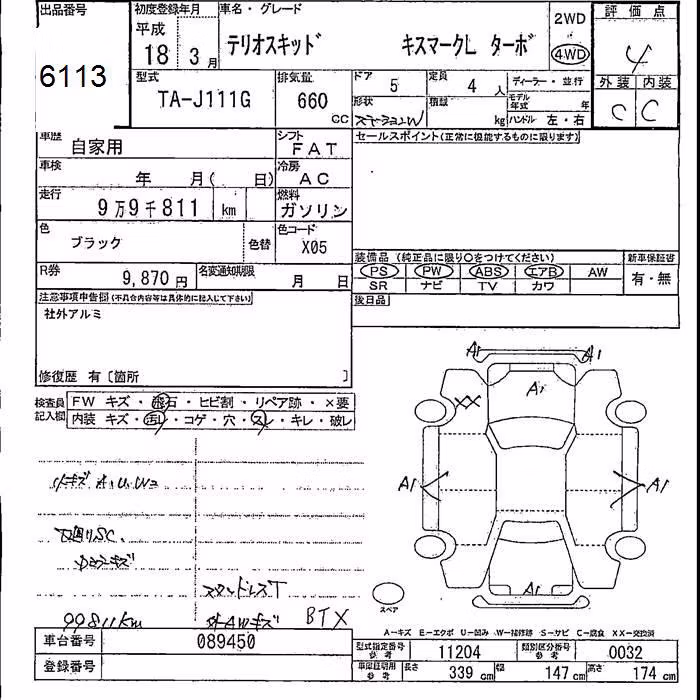 出品番号
6113
初度登録年月
平成
18 3 月
車名・グレード
テリオスキッド キスマークL ターボ
2WD
4WD
評価点
4
外装 内装
C C
型式
TA-J111G
排気量
660
CC
ドア 5
定員 4 人
ディーラー・並行
形状
積載 kg
モデル年式 年
ハンドル 左・右
車歴
自家用
シフト
FAT
セールスポイント(正常に機能するものに限ります)
車検
年 月( 日)
冷房
AC
走行
9万9千811 km
燃料
ガソリン
色
ブラック
色替
色コード
X05
装備品(純正品に限り○をつけてください)
新車保証書
PS PW ABS エアB AW
SR ナビ TV カワ
有・無
R券
9,870 円
名変通知期限
月 日
後日品
注意事項申告欄(不具合内容等は具体的に記入して下さい)
社外アルミ
修復歴 有〔箇所 〕
検査員記入欄
FW キズ・飛石・ヒビ割・リペア跡・×要
内装 キズ・汚れ・コゲ・穴・スレ・キレ・破レ
小キズ A.U.W2
下廻りSC.
スタッドレスT
99811km
社外AWキズ
BTX
A1 A1
A1
XX
A1 A1
A1
スペア
A-キズ E-エクボ U-凹み W-補修跡 S-サビ C-腐食 XX-交換済
車台番号
089450
登録番号
型式指定番号 参考
11204
類別区分番号 参考
0032
車庫証明用 参考
長さ 339 cm
幅 147 cm
高さ 174 cm